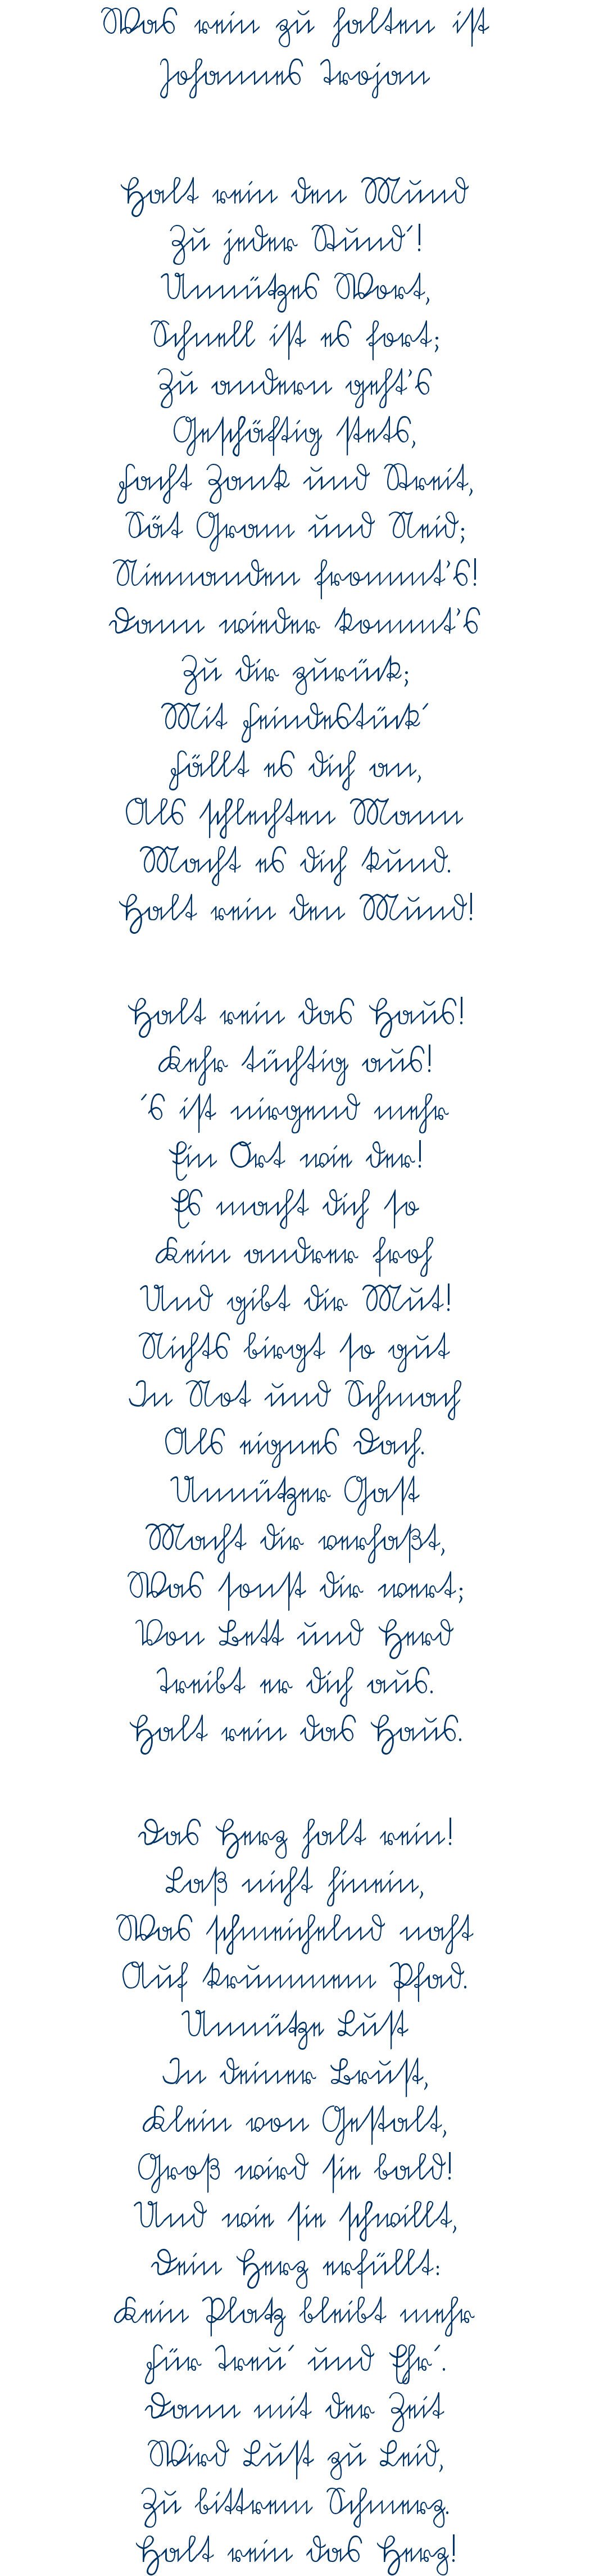 Was rein zu halten ist
Johannes Trojan
Halt rein den Mund
Zu jeder Stund´!
Unnützes Wort,
Schnell ist es fort;
Zu andern geht's
Geschäftig stets,
Facht Zank und Streit,
Sät Gram und Neid;
Niemanden frommt's!
Dann wieder kommt's
Zu dir zurück;
Mit Feindestück´
Fällt es dich an,
Als schlechten Mann
Macht es dich kund.
Halt rein den Mund!
Halt rein das Haus!
Kehr tüchtig aus!
´s ist nirgend mehr
Ein Ort wie der!
Es macht dich so
Kein andrer froh
Und gibt dir Mut!
Nichts birgt so gut
In Not und Schmach
Als eignes Dach.
Unnützer Gast
Macht dir verhaßt,
Was sonst dir wert;
Von Bett und Herd
Treibt er dich aus.
Halt rein das Haus.
Das Herz halt rein!
Laß nicht hinein,
Was schmeichelnd naht
Auf krummem Pfad.
Unnütze Lust
In deiner Brust,
Klein von Gestalt,
Groß wird sie bald!
Und wie sie schwillt,
Dein Herz erfüllt:
Kein Platz bleibt mehr
Für Treu´ und Ehr´.
Dann mit der Zeit
Wird Lust zu Leid,
Zu bittrem Schmerz.
Halt rein das Herz!